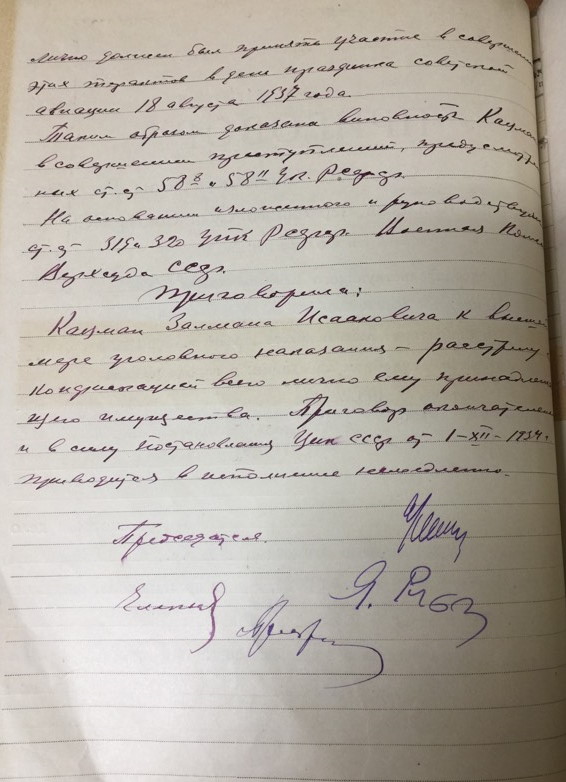 лично должен был принять участие в совершении
этих терактов в день праздника советской
авиации 18 августа 1937 года.
Таким образом доказана виновность Кацман
в совершении преступлений, предусмотрен
ных ст.ст 58⁸ и 58¹¹ УК. РСФСР.
На основании изложенного и руководствуясь
ст.ст 319 и 320 УПК РСФСР. Военная Колле
Верхсуда СССР.
Приговорила:
Кацман Залмана Исааковича к высшей
мере уголовного наказания – расстрелу с
конфискацией всего лично ему принадлежа
щего имущества. Приговор окончательный
и в силу постановления ЦИК СССР от 1-XII-1934г.
приводится в исполнение немедленно.
Председатель.
Члены
Я. Рыб